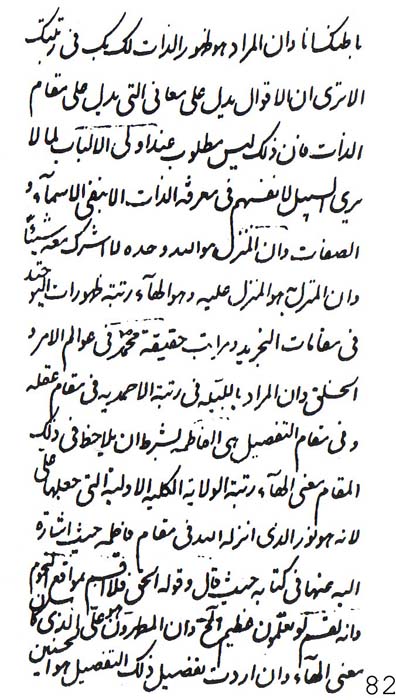 باطنك فانا وان المراد هو ظهور الذات لك بك فى رتبتك
الا ترى ان الاقوال يدل على معانى التى يدل على مقام
الذات فان ذلك ليس مطلوب عند اولى الالباب لما لا
يرى السبيل لانفسهم فى معرفة الذات الا بنفى الاسمآء و
الصفات وان المنزل هو الله وحده لا اشرك معه شيئاً
وان المنزل به هو المنزل عليه وهو الهآء رتبة ظهورات التوحيد
فى مقامات التجريد ومراتب حقيقة محمد ص فى عوالم الامر و
الخلق وان المراد بالليلة فى رتبة الاحمديه فى مقام عقله
وفى مقام التفصيل هى الفاطمه بشرط ان يلاحظ فى ذلك
المقام معنى الهآء رتبة الولاية الكلية الاولية التى جعلها على
لانه هو نور الذى انزله الله فى مقام فاطمه حيث اشاره
اليه عنها فى كتابه حيث قال وقوله الحق فلا اقسم بمواقع النجوم
وانه لقسم لو تعلمون عظيم وان المطهرون هو على الذى كان
معنى الهآء وان اردت تفصيل ذلك التفصيل هو الحسنين
82